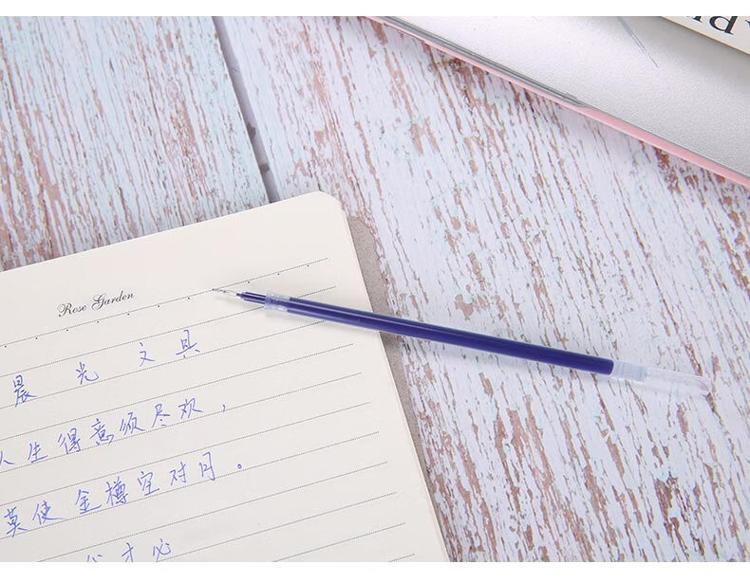 Rose Garden
晨光文具
人生得意须尽欢，
莫使金樽空对月。
我才必